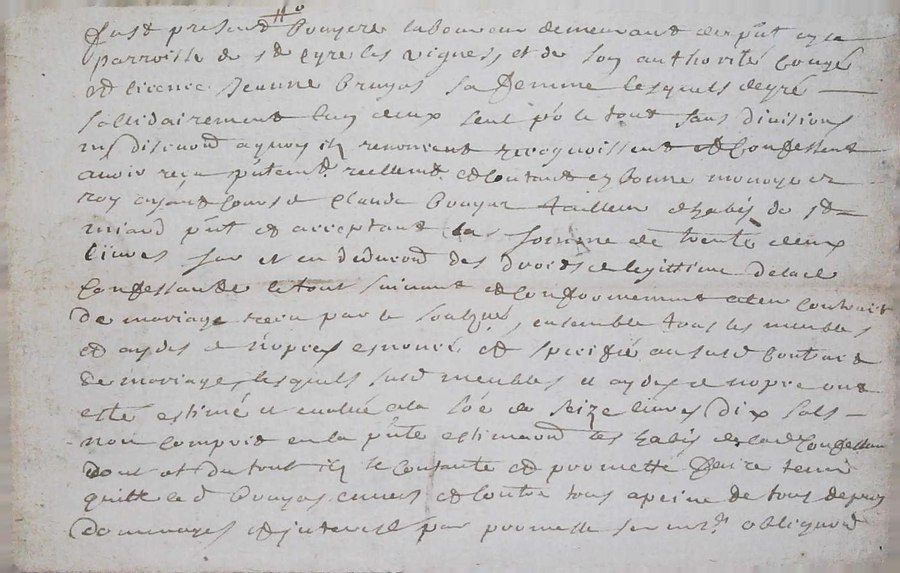 fust present bouyere laboureur demeurant de pnt en la
parroisse de st Cyre les vignes, et de son authorité Congé
et licence Jeanne bruyas sa femme lesquels de gré
sollidairement luy deux seul po le tout sans divisions
ny discuond a quoy ils renoncent recognoissent et Confessent
avoir reçu pntemt reellemt et Contant en bonne monoye
roy ayant Cours de Claude bouyar tailleur dhabis de st
miard pnt et acceptant la somme de trente deux
livres sur et en deducond des droits de legittime delade
Confessante le tout suivant et Conformement a leur Contract
de mariage receu par le soubgné, ensemble tous les meubles
et aydes de nopces enoncé et speciffié au susd Contract
de mariages lesquels susd meubles et aydes de nopce ont
esté estimé et evalué a la soe de seize livres dix sols
non Compris en la pnte estimaond les habis de lad Confessan
dont et du tout ils se Contante et promette faire tenir
quitte led bouyas envers et Contre tous a peine de tous depens
dommages et interest par promesse sermt obligaond